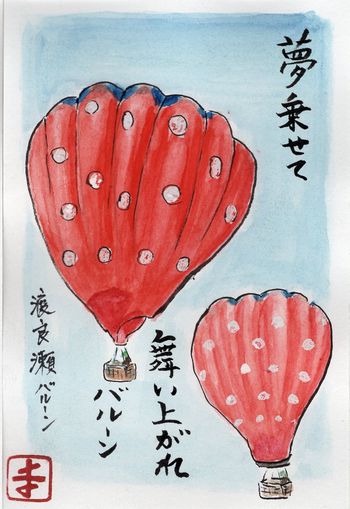 夢乗せて
舞い上がれ
バルーン
渡良瀬バルーン